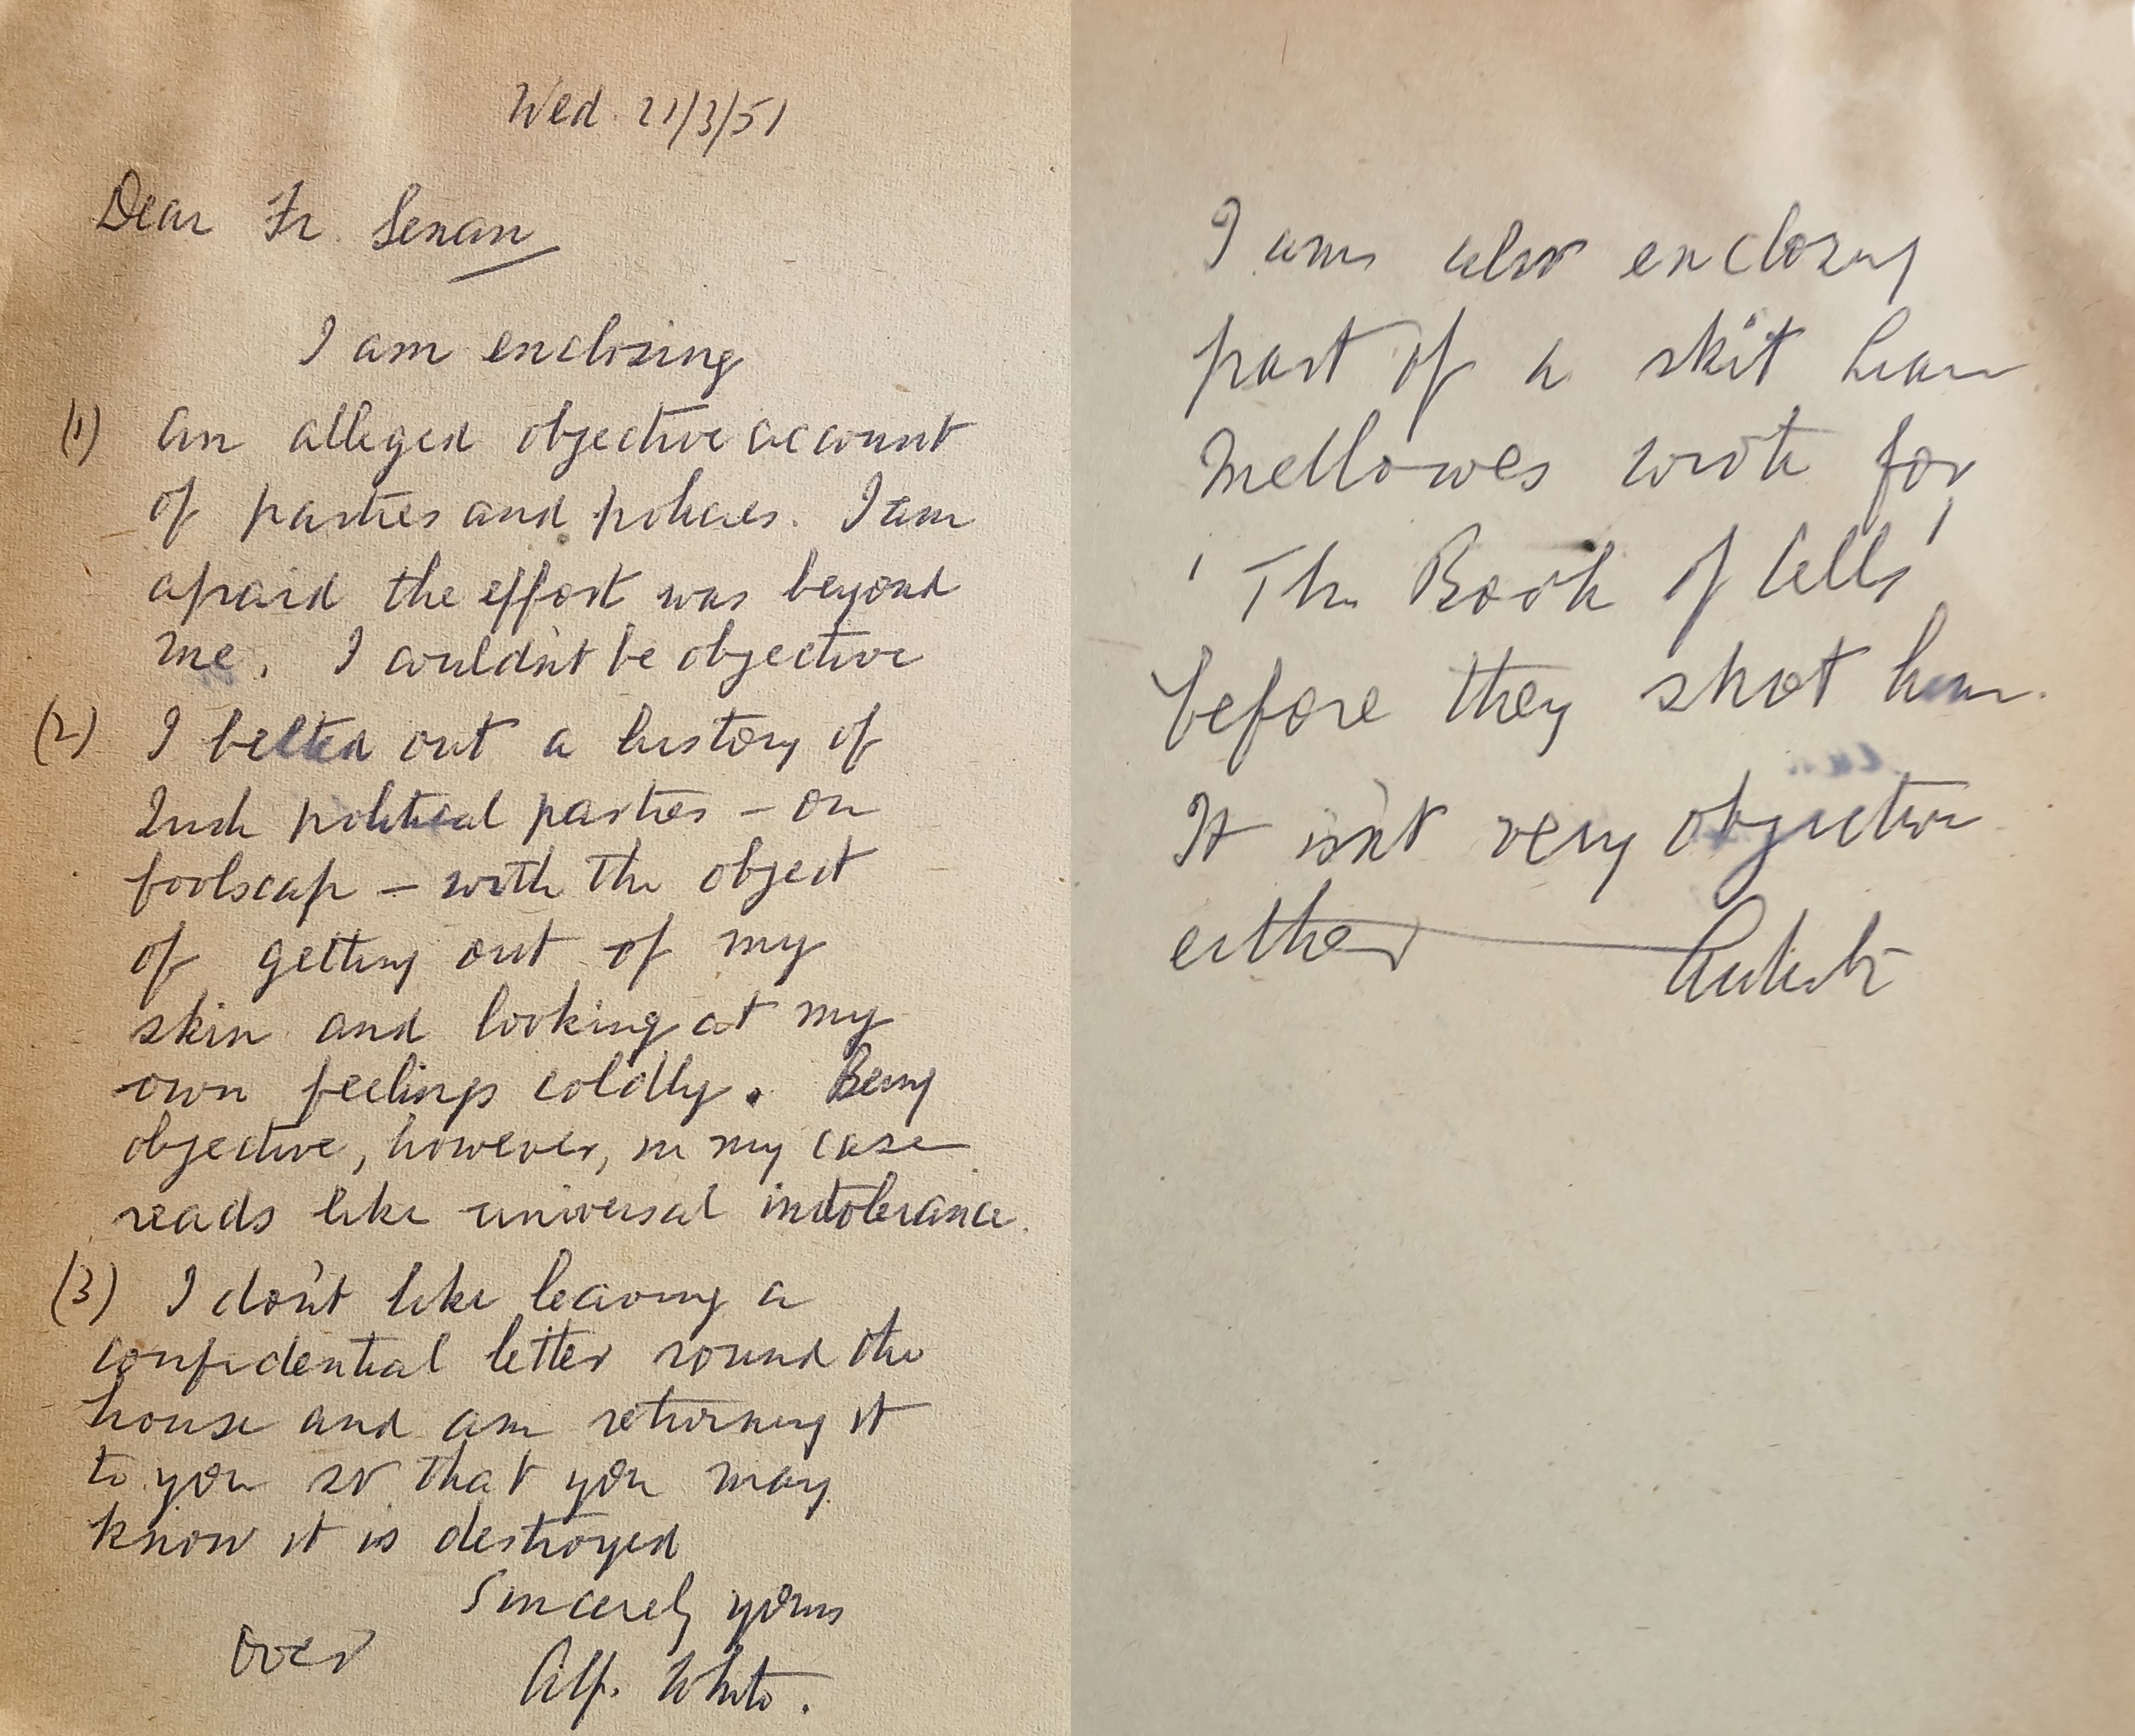 Wed. 21/3/51
Dear Fr. Senan
I am enclosing
(1) an alleged objective account
of parties and policies. I am
afraid the effort was beyond
me. I couldn't be objective
(2) I belted out a history of
Irish political parties – on
foolscap – with the object
of getting out of my
skin and looking at my
own feelings coldly. Being
objective, however, in my case
reads like universal intolerance.
(3) I don't like leaving a
confidential letter round the
house and am returning it
to you so that you may
know it is destroyed
Sincerely yours
over
Alf. White.
I am also enclosing
part of a skit Liam
Mellowes wrote for
'The Book of Cells'
before they shot him.
It isn't very objective
either